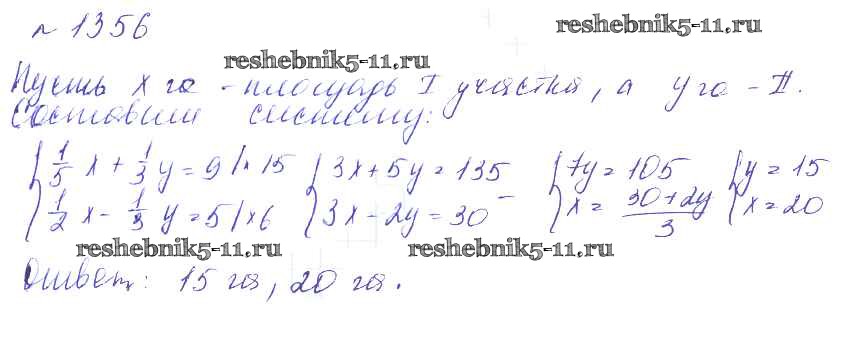 № 1356
reshebnik5-11.ru
reshebnik5-11.ru
Пусть x га - площадь I участка, а y га - II.
Составим систему:
{ 1/5 x + 1/3 y = 9 |× 15 { 3x + 5y = 135 { 7y = 105 { y = 15
{ 1/2 x - 1/3 y = 5 |× 6 { 3x - 2y = 30 { x = (30+2y)/3 { x = 20
reshebnik5-11.ru reshebnik5-11.ru
Ответ: 15 га, 20 га.